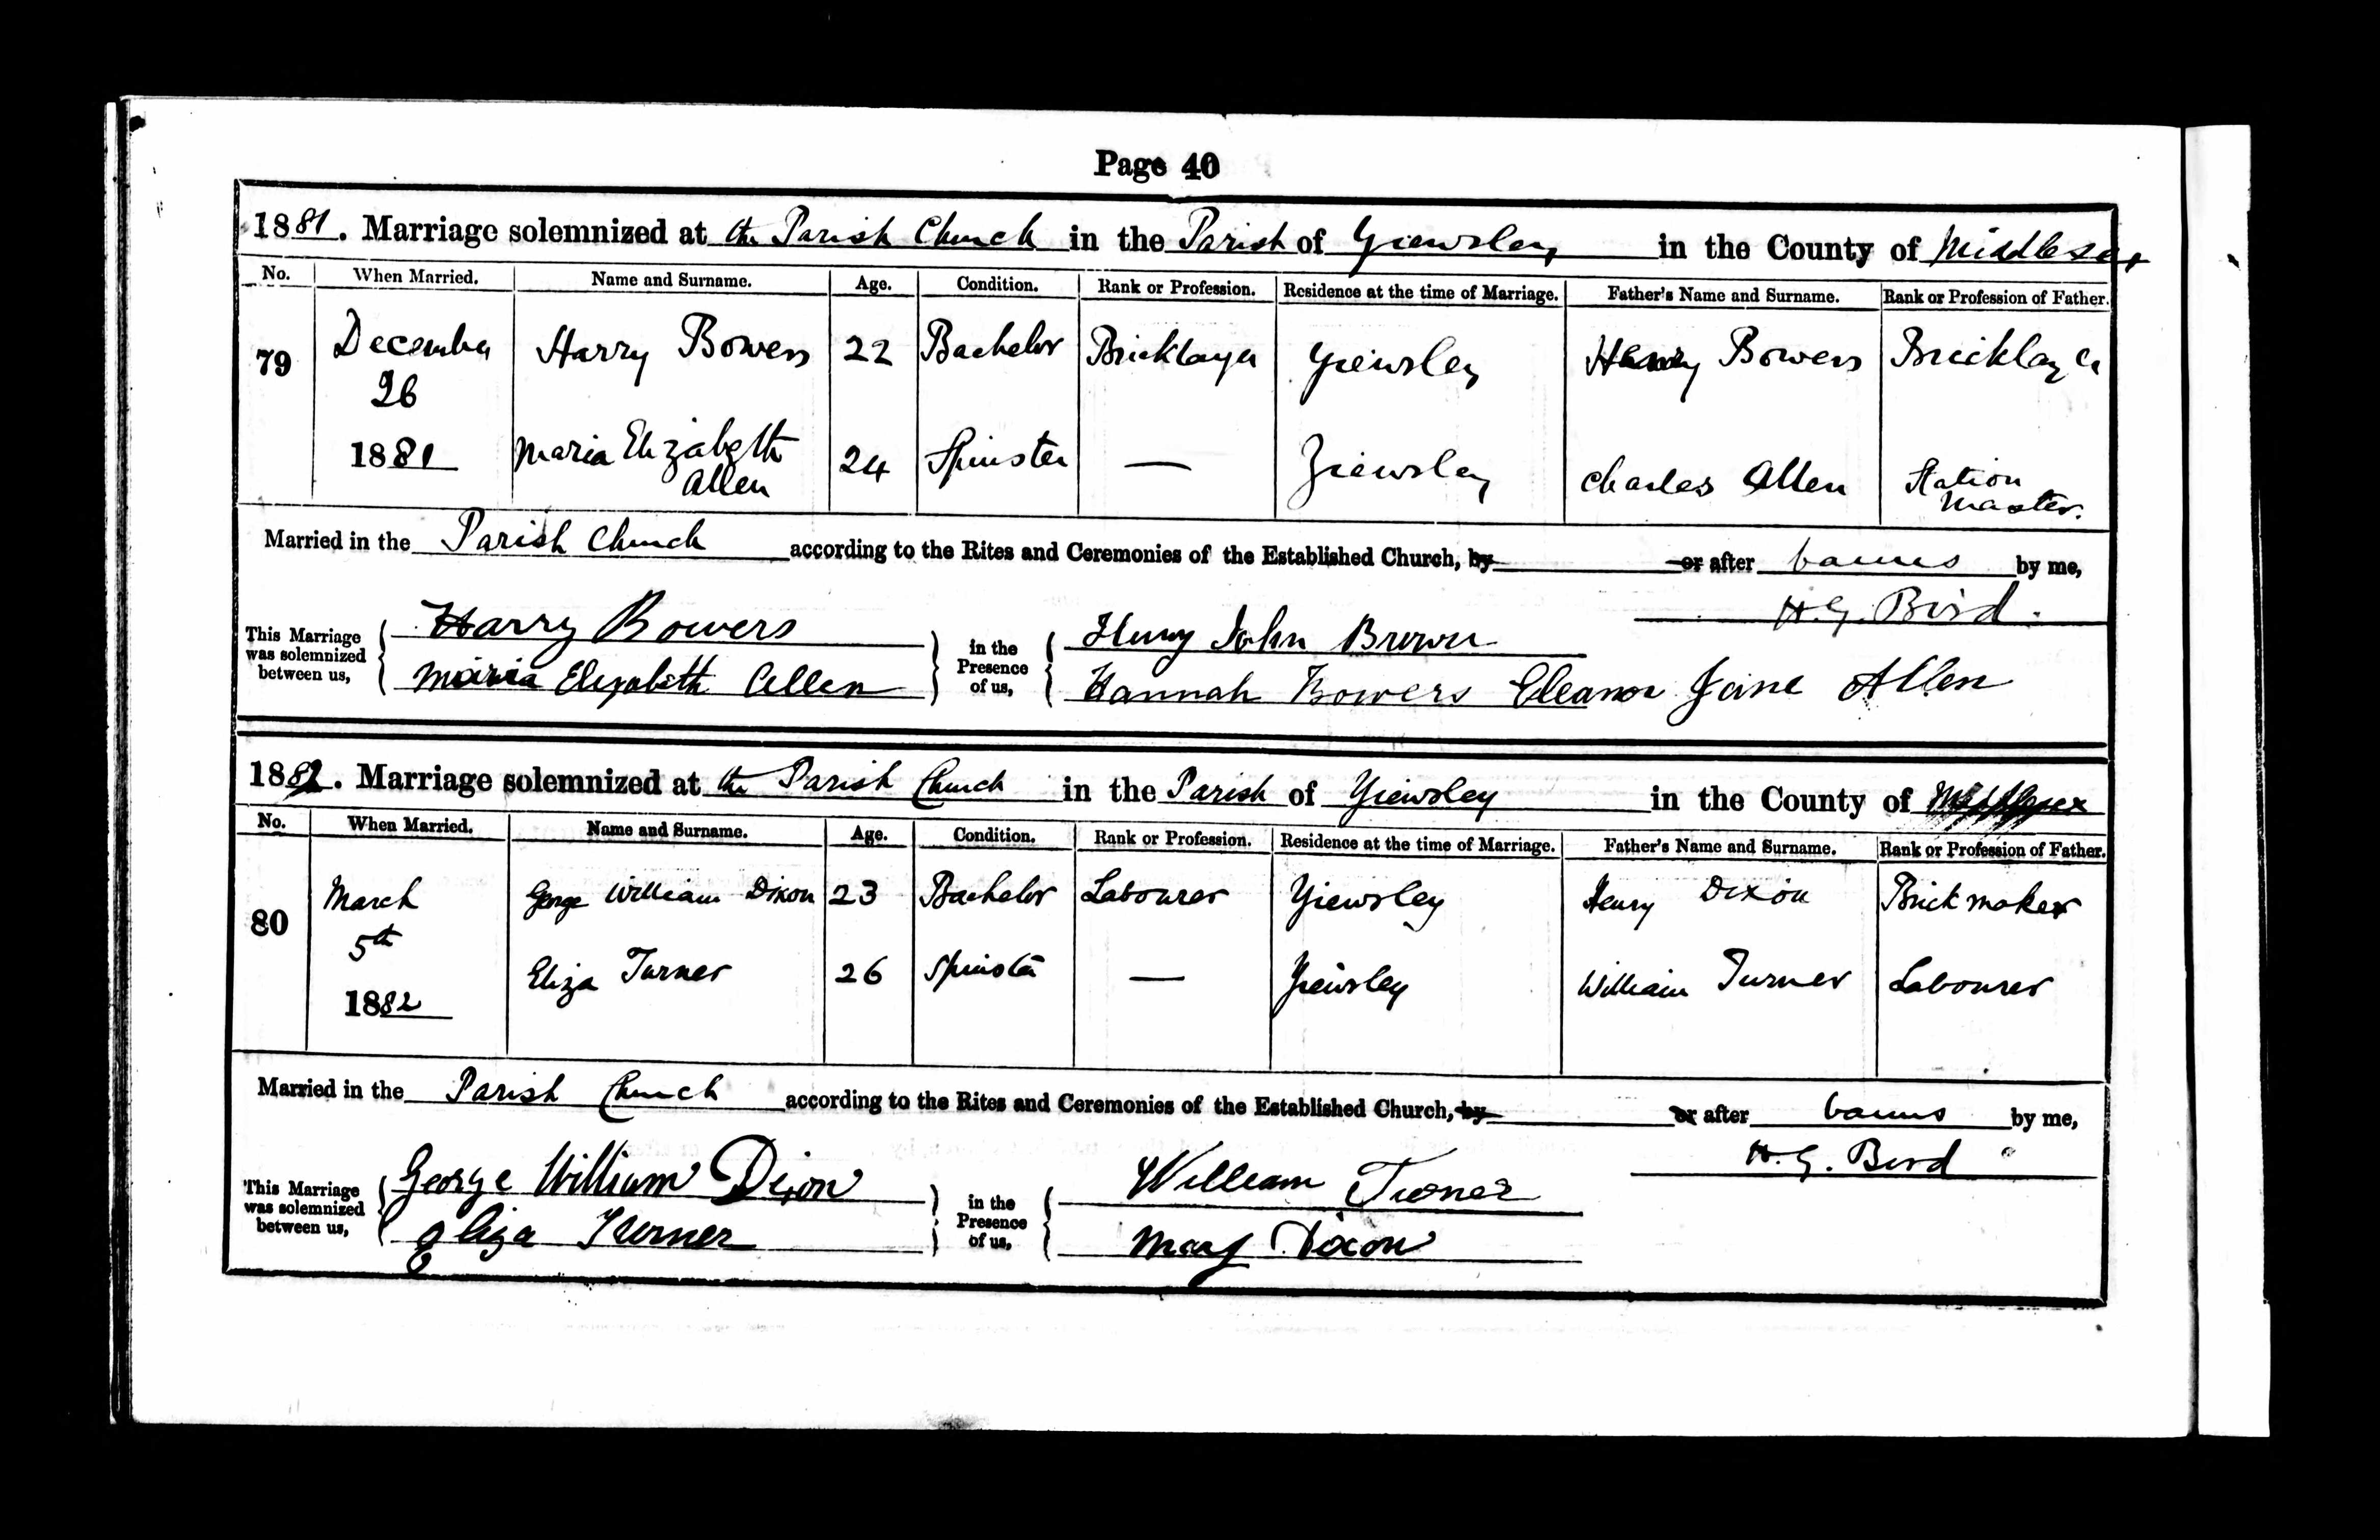 Page 40
1881. Marriage solemnized at the Parish Church in the Parish of Yiewsley in the County of Middlesex
No. When Married. Name and Surname. Age. Condition. Rank or Profession. Residence at the time of Marriage. Father's Name and Surname. Rank or Profession of Father.
79 December 26 1881 Harry Bowers 22 Bachelor Bricklayer Yiewsley Henry Bowers Bricklayer
Maria Elizabeth Allen 24 Spinster — Yiewsley Charles Allen Station Master.
Married in the Parish Church according to the Rites and Ceremonies of the Established Church, by or after banns by me,
H. G. Bird.
This Marriage was solemnized between us, Harry Bowers in the Presence of us, Henry John Brown
Maria Elizabeth Allen Hannah Bowers Eleanor Jane Allen
1882. Marriage solemnized at the Parish Church in the Parish of Yiewsley in the County of Middlesex
No. When Married. Name and Surname. Age. Condition. Rank or Profession. Residence at the time of Marriage. Father's Name and Surname. Rank or Profession of Father.
80 March 5th 1882 George William Dixon 23 Bachelor Labourer Yiewsley Henry Dixon Brickmaker
Eliza Turner 26 Spinster — Yiewsley William Turner Labourer
Married in the Parish Church according to the Rites and Ceremonies of the Established Church, by or after banns by me,
H. G. Bird
This Marriage was solemnized between us, George William Dixon in the Presence of us, William Turner
Eliza Turner Mary Dixon